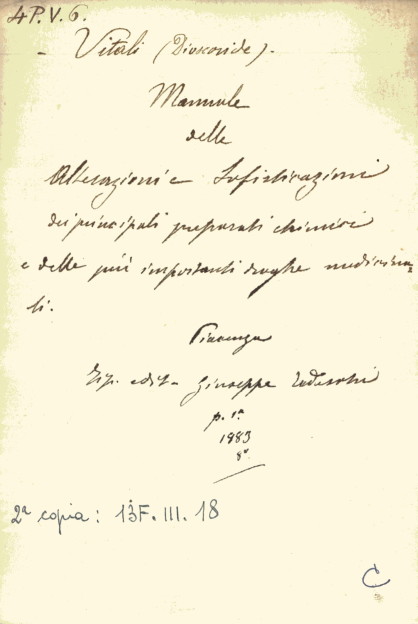 4P.V.6.
- Vitali (Dioscoride).
Manuale
delle
Alterazioni e Sofisticazioni
dei principali preparati chimici
e delle più importanti droghe medicina=
li.
Piacenza
Tip. edit. Giuseppe Tedeschi
p. 1ª
1883
8°
2ª copia: 13F.III.18
C